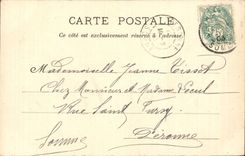 CARTE POSTALE
Ce côté est exclusivement réservé à l'adresse.
Mademoiselle Jeanne Tissot
Chez Monsieur et Madame
Rue Saint Fursy
Somme Péronne